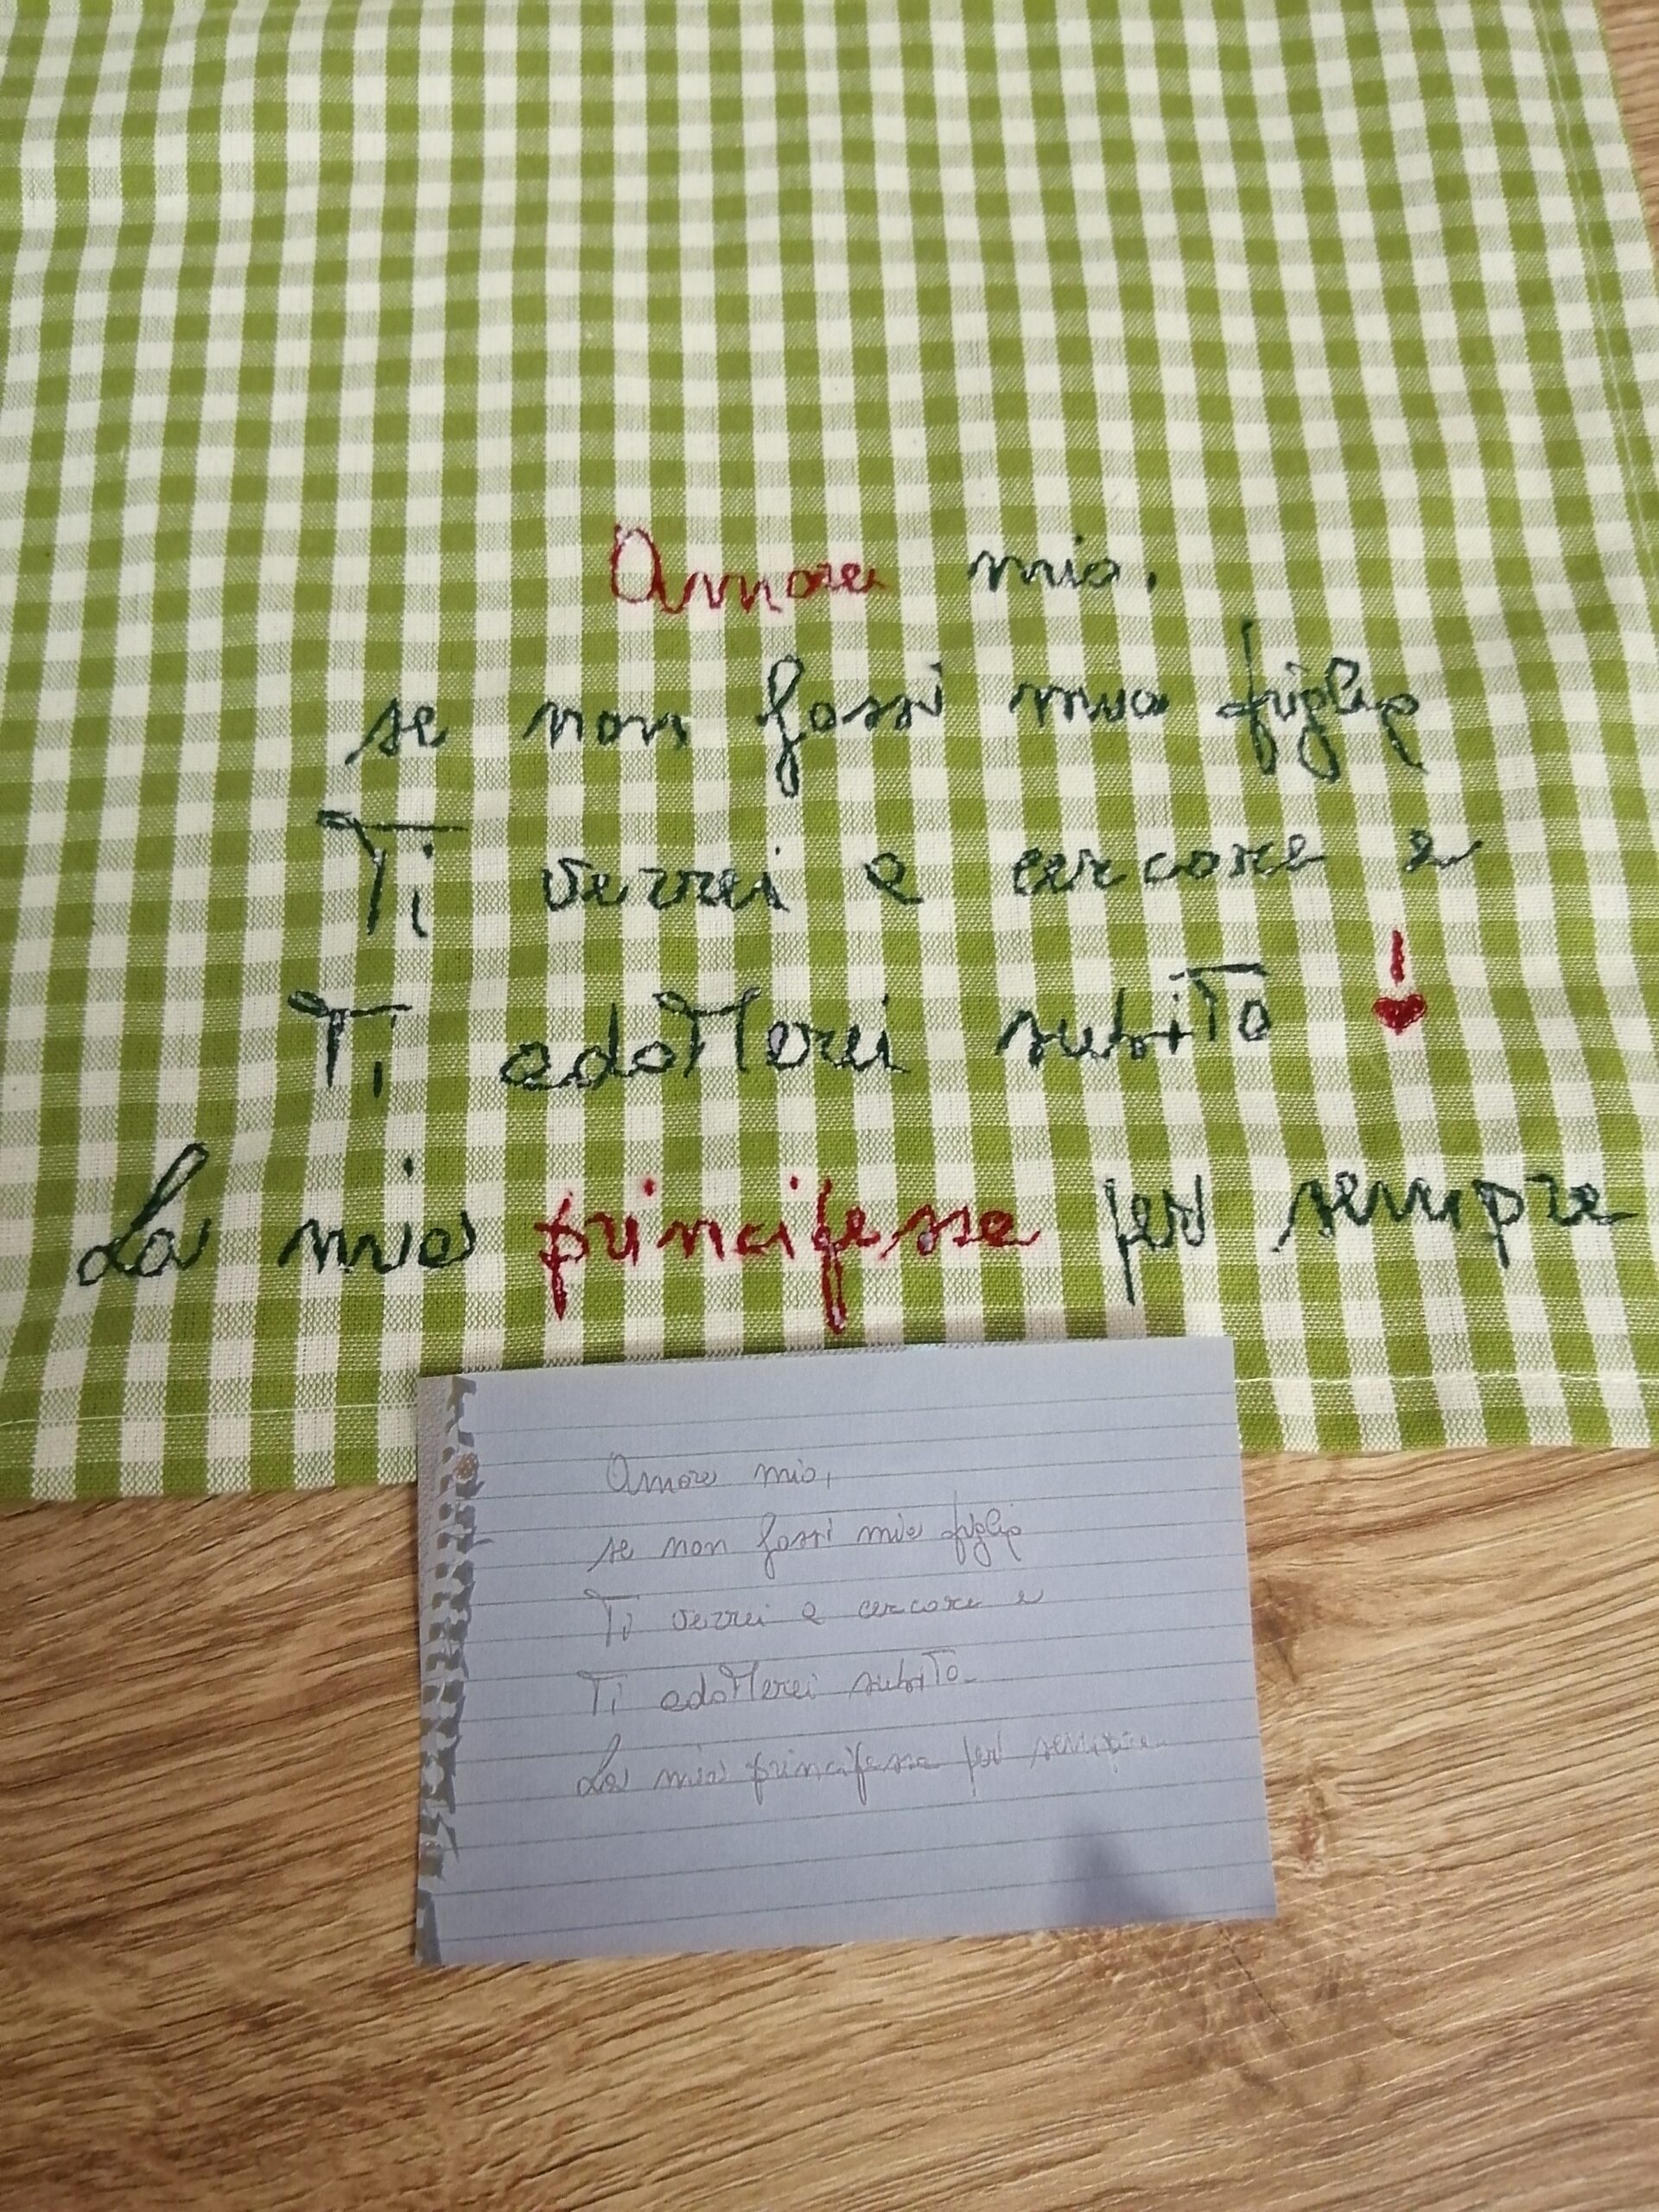 Amore mio,
se non fossi mia figlia
Ti verrei a cercare e
Ti adotterei subito !
La mia principessa per sempre
Amore mio,
se non fossi mia figlia
Ti verrei a cercare e
Ti adotterei subito.
La mia principessa per sempre.